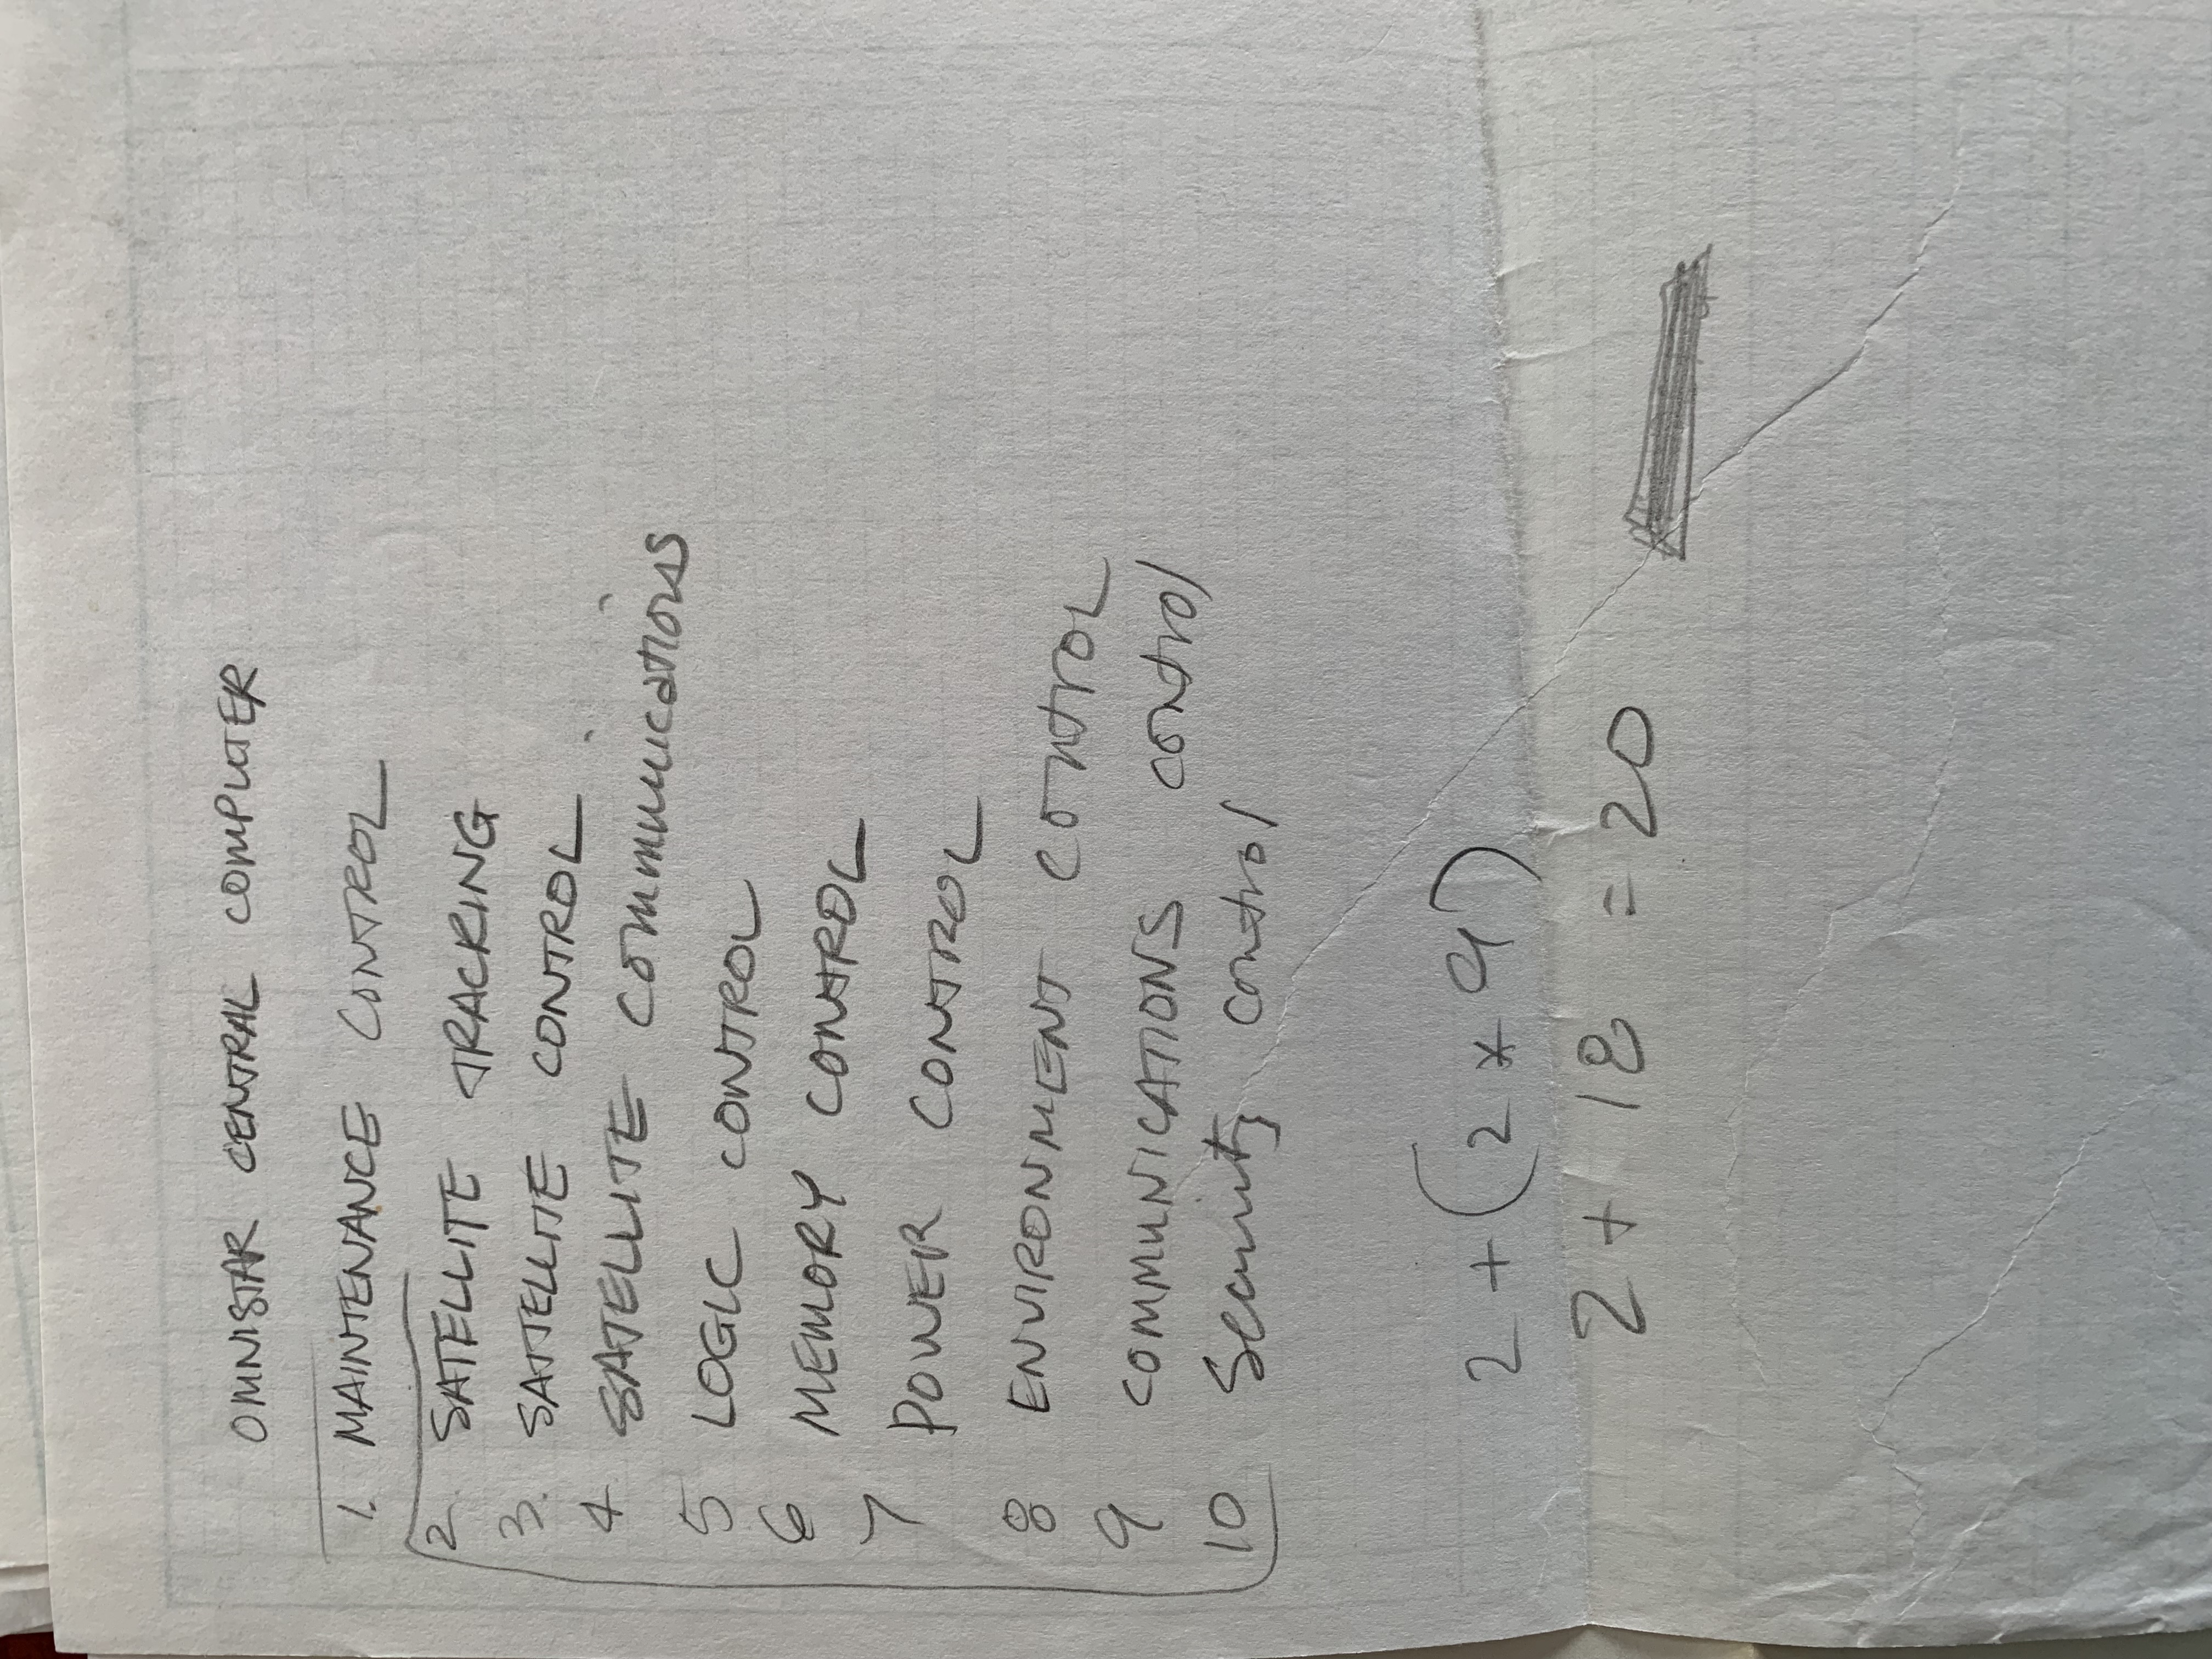 OMNISTAR CENTRAL COMPUTER
1. MAINTENANCE CONTROL
2. SATELLITE TRACKING
3. SATELLITE CONTROL
4 SATELLITE COMMUNICATIONS
5 LOGIC CONTROL
6 MEMORY CONTROL
7 POWER CONTROL
8 ENVIRONMENT CONTROL
9 COMMUNICATIONS CONTROL
10 Security control
2 + (2 x 9)
2 + 18 = 20